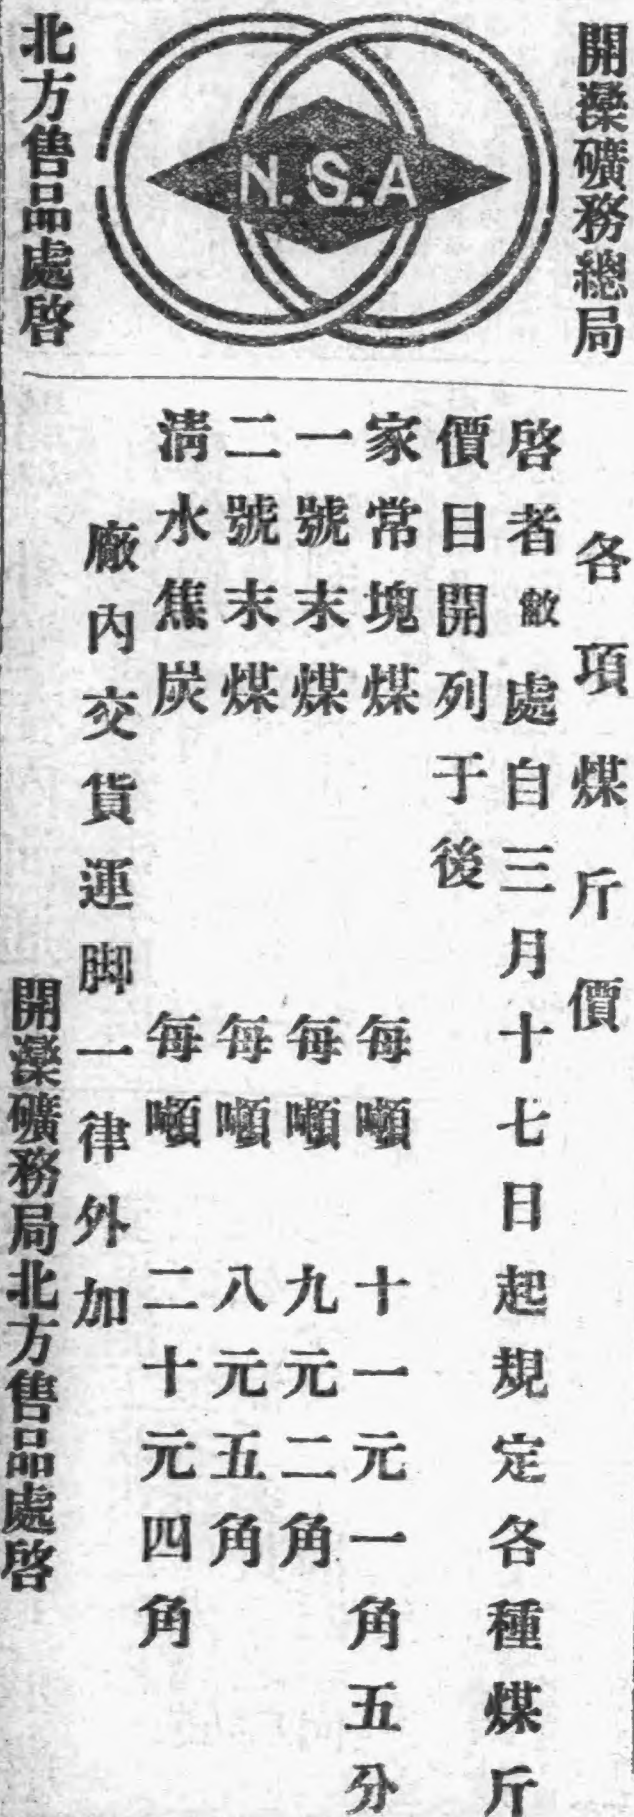 開灤礦務總局
N.S.A
北方售品處啓
各項煤斤價
啓者敝處自三月十七日起規定各種煤斤
價目開列于後
家常塊煤 每噸 十一元一角五分
一號末煤 每噸 九元二角
二號末煤 每噸 八元五角
淸水焦炭 每噸 二十元四角
廠內交貨運脚一律外加
開灤礦務局北方售品處啓